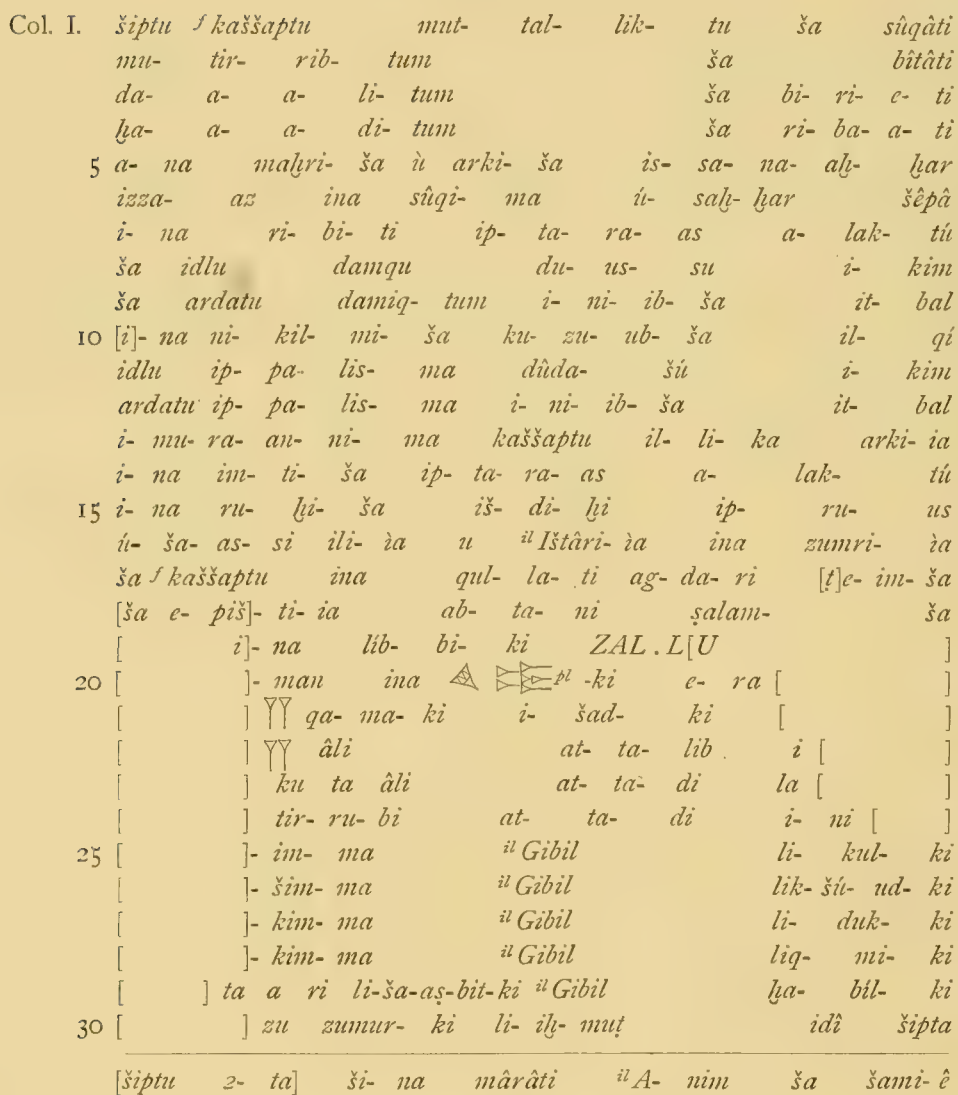 Col. I. šiptu f kaššaptu mut- tal- lik- tu ša sûqâti
mu- tir- rib- tum ša bîtâti
da- a- a- li- tum ša bi- ri- e- ti
ḫa- a- a- di- tum ša ri- ba- a- ti
5 a- na maḫri- ša ù arki- ša is- sa- na- aḫ- ḫar
izza- az ina sûqi- ma ú- saḫ- ḫar šêpâ
i- na ri- bi- ti ip- ta- ra- as a- lak- tú
ša idlu damqu du- us- su i- kim
ša ardatu damiq- tum i- ni- ib- ša it- bal
10 [i]- na ni- kil- mi- ša ku- zu- ub- ša il- qí
idlu ip- pa- lis- ma dûda- šú i- kim
ardatu ip- pa- lis- ma i- ni- ib- ša it- bal
i- mu- ra- an- ni- ma kaššaptu il- li- ka arki- ia
i- na im- ti- ša ip- ta- ra- as a- lak- tú
15 i- na ru- ḫi- ša iš- di- ḫi ip- ru- us
ú- ša- as- si ili- ìa u il Ištâri- ìa ina zumri- ìa
ša f kaššaptu ina qul- la- ti ag- da- ri [t]e- im- ša
[ša e- piš]- ti- ia ab- ta- ni ṣalam- ša
[ i]- na líb- bi- ki ZAL . L[U ]
20 [ ]- man ina pl -ki e- ra [ ]
[ ] qa- ma- ki i- šad- ki [ ]
[ ] âli at- ta- lib i [ ]
[ ] ku ta âli at- ta- di la [ ]
[ ] tir- ru- bi at- ta- di i- ni [ ]
25 [ ]- im- ma il Gibil li- kul- ki
[ ]- šim- ma il Gibil lik- šú- ud- ki
[ ]- kim- ma il Gibil li- duk- ki
[ ]- kim- ma il Gibil liq- mi- ki
[ ] ta a ri li-ša-aṣ-bit-ki il Gibil ḫa- bíl- ki
30 [ ] zu zumur- ki li- iḫ- muṭ idî šipta
[šiptu 2- ta] ši- na mârâti il A- nim ša šami- ê